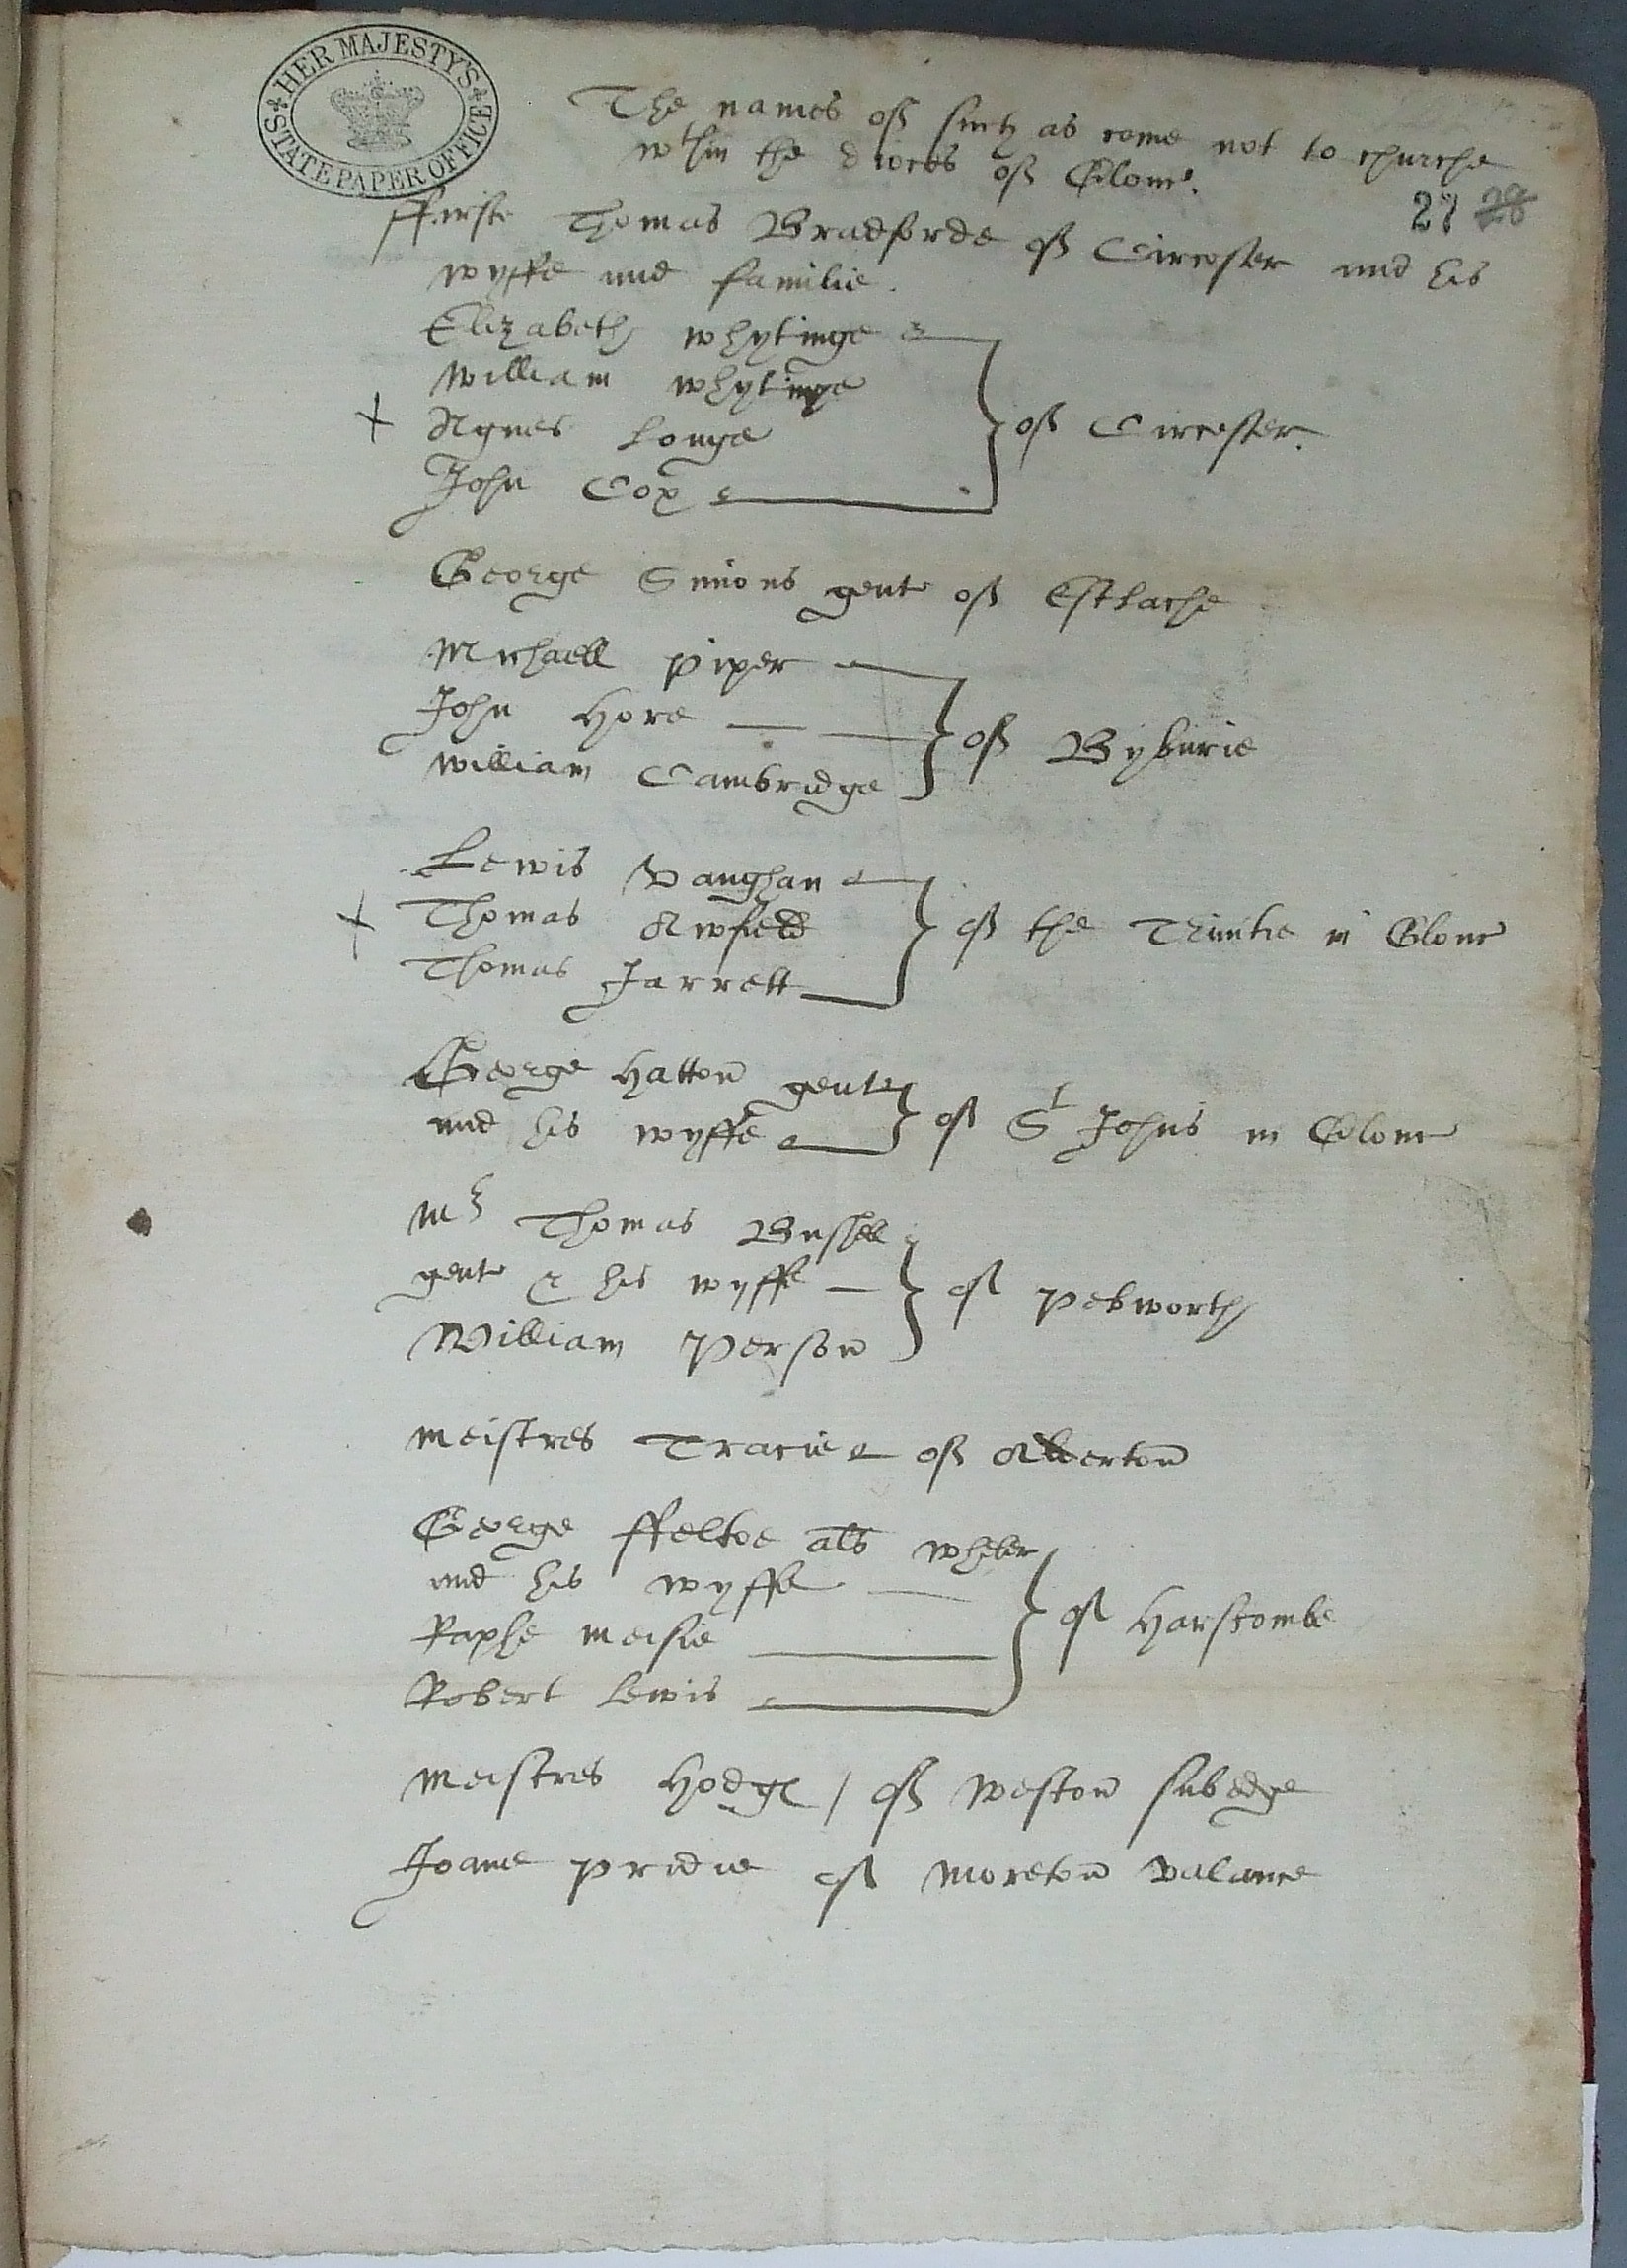 HER MAJESTY'S STATE PAPER OFFICE
The names off such as come not to churche
wthin the dioces off Glouc.
27 28
ffirste Thomas Bradforde off Circester and his
wyffe and familie.
Elizabeth whytinge
William whytinge
x Agnes Longe
John Cox
off Circester.
George Simons gent off Estlache
Michaell piper
John Hore
William Cambridge
off Byburie
Lewis Vaughan
x Thomas Alwfield
Thomas Jarrett
off the Trinitie in Glouc
George Hatton gent
and his wyffe
off St Johns in Glouc
Mr Thomas Bushell
gent & his wyffe
William Person
off pebworth
meistres Tracie off Alderton
George ffeltoe als wheler
and his wyffe
Raphe meisie
Robert Lewis
off Harscombe
meistres Hodges / off weston subedge
Joane pridie off moreton valance